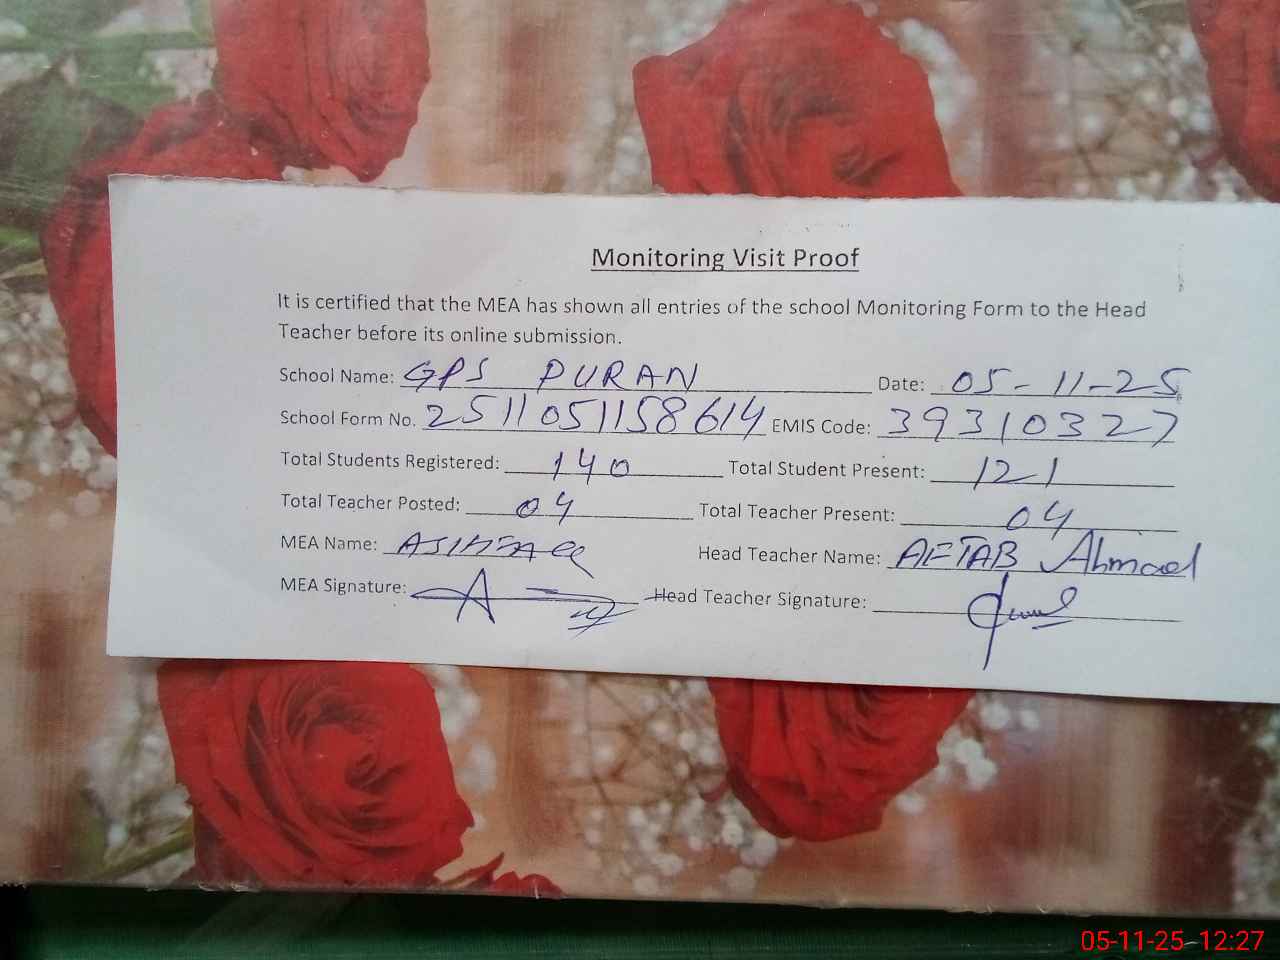 Monitoring Visit Proof
It is certified that the MEA has shown all entries of the school Monitoring Form to the Head
Teacher before its online submission.
School Name: GPS PURAN Date: 05-11-25
School Form No. 2511051158614 EMIS Code: 39310327
Total Students Registered: 140 Total Student Present: 121
Total Teacher Posted: 04 Total Teacher Present: 04
MEA Name: Head Teacher Name: AFTAB Ahmad
MEA Signature: Head Teacher Signature:
05-11-25 12:27